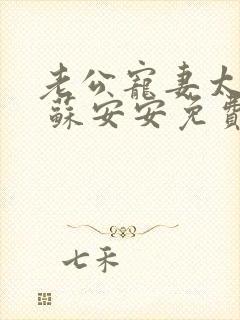 老公寵妻太
蘇安安免費
七禾